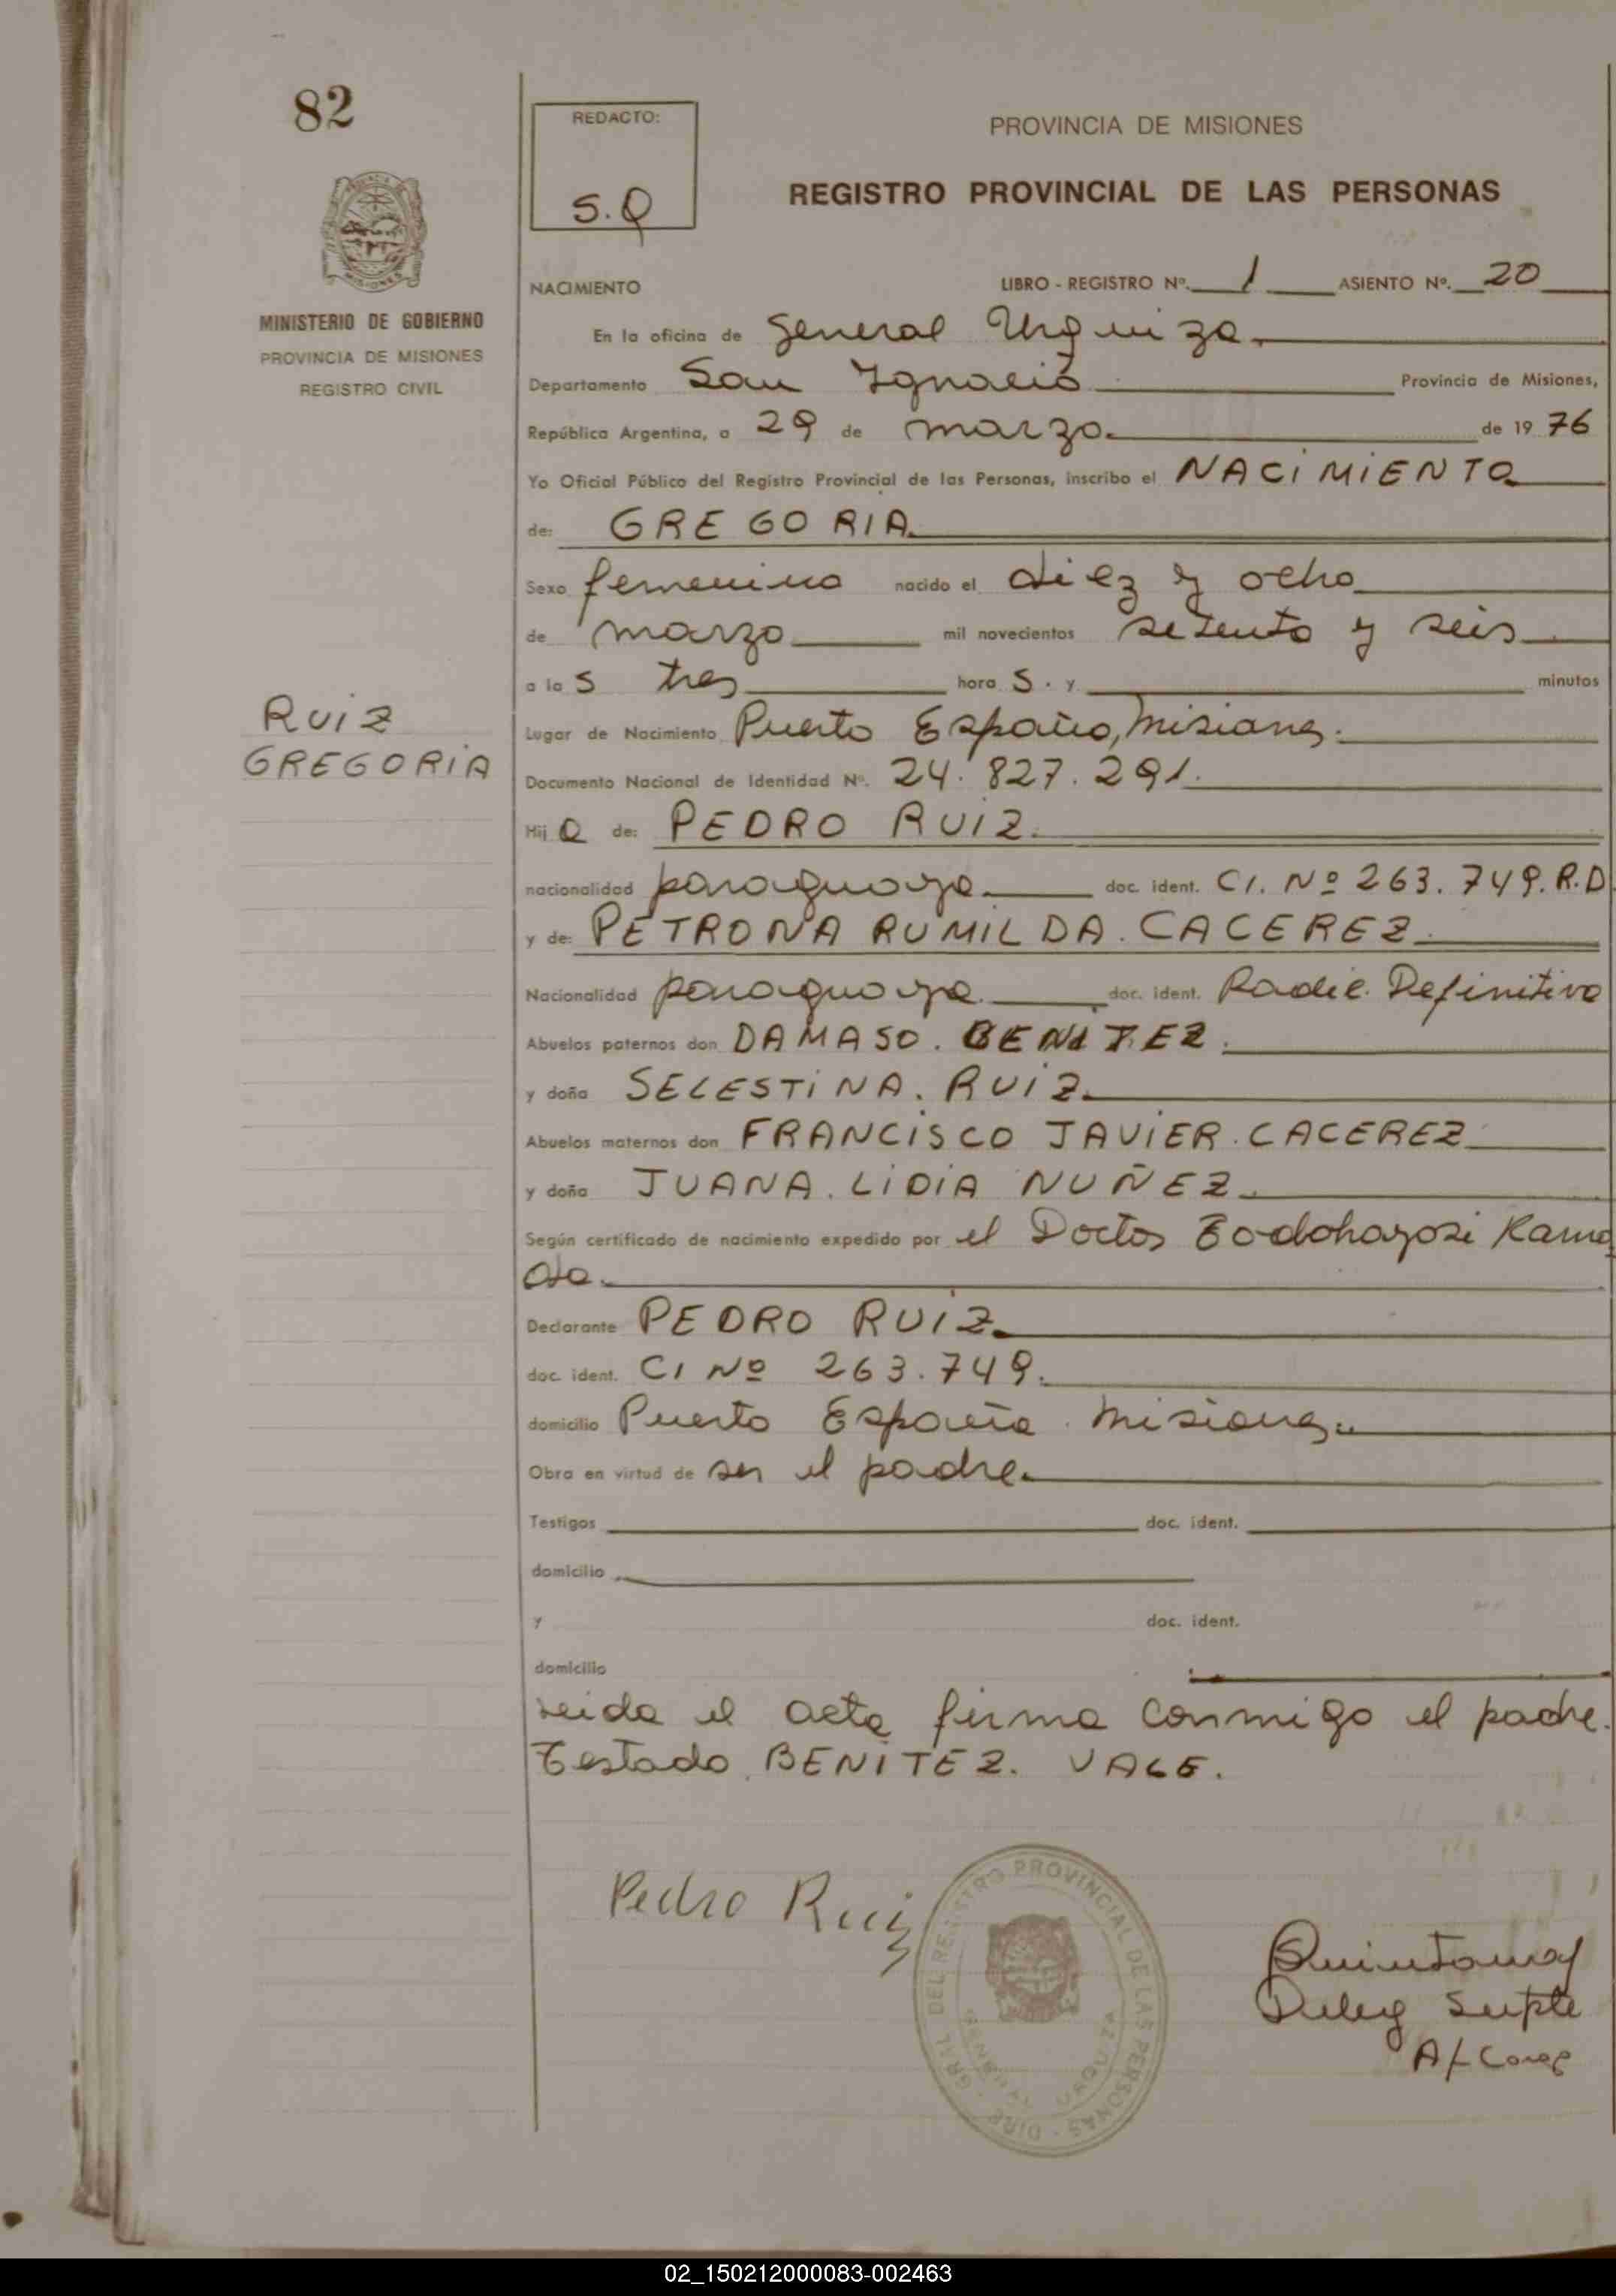 82
MINISTERIO DE GOBIERNO
PROVINCIA DE MISIONES
REGISTRO CIVIL
Ruiz
GREGORIA
REDACTO:
S.Q
PROVINCIA DE MISIONES
REGISTRO PROVINCIAL DE LAS PERSONAS
NACIMIENTO LIBRO - REGISTRO Nº. 1 ASIENTO Nº. 20
En la oficina de General Urquiza.
Departamento San Ignacio Provincia de Misiones,
República Argentina, a 29 de marzo. de 19 76
Yo Oficial Público del Registro Provincial de las Personas, inscribo el NACIMIENTO
de: GREGORIA.
Sexo femenino nacido el diez y ocho
de marzo mil novecientos setenta y seis
a las tres horas. y minutos
Lugar de Nacimiento Puerto España, Misiones.
Documento Nacional de Identidad Nº. 24.827.291.
Hija de: PEDRO RUIZ.
nacionalidad paraguaya. doc. ident. CI. Nº 263.749. R.D
y de: PETRONA RUMILDA. CACEREZ.
Nacionalidad paraguaya. doc. ident. Radic. Definitiva
Abuelos paternos don DAMASO. BENITEZ.
y doña SELESTINA. RUIZ.
Abuelos maternos don FRANCISCO JAVIER. CACEREZ
y doña JUANA. LIDIA NUÑEZ.
Según certificado de nacimiento expedido por el Doctor Kama
da.
Declarante PEDRO RUIZ.
doc. ident. CI Nº 263.749.
domicilio Puerto España. Misiones.
Obra en virtud de ser el padre.
Testigos doc. ident.
domicilio
y doc. ident.
domicilio
Leida el acta firma conmigo el padre.
Testado BENITEZ. VALE.
Pedro Ruiz
DIRE. GRAL. DEL REGISTRO PROVINCIAL DE LAS PERSONAS
GENERAL URQUIZA
Deleg Suplte
A/Cargo
02_150212000083-002463